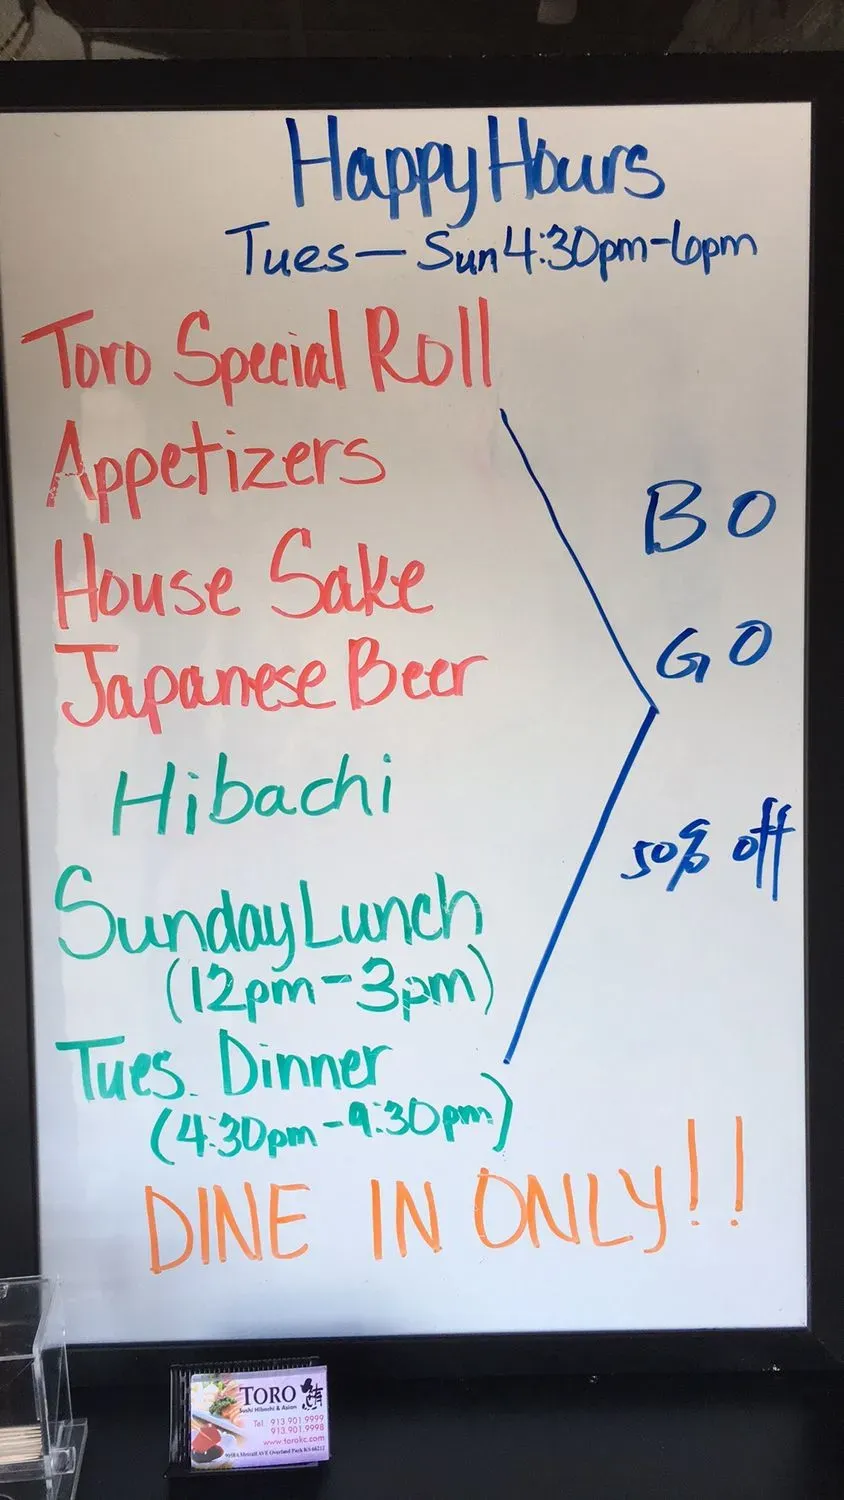 Happy Hours
Tues — Sun 4:30pm-6pm
Toro Special Roll
Appetizers
House Sake
Japanese Beer
BO
GO
Hibachi
50% off
Sunday Lunch
(12pm-3pm)
Tues. Dinner
(4:30pm-9:30pm)
DINE IN ONLY!!
TORO
Sushi Hibachi & Asian
Tel: 913.901.9999
913.901.9998
www.torokc.com
Metcalf AVE Overland Park KS 66212